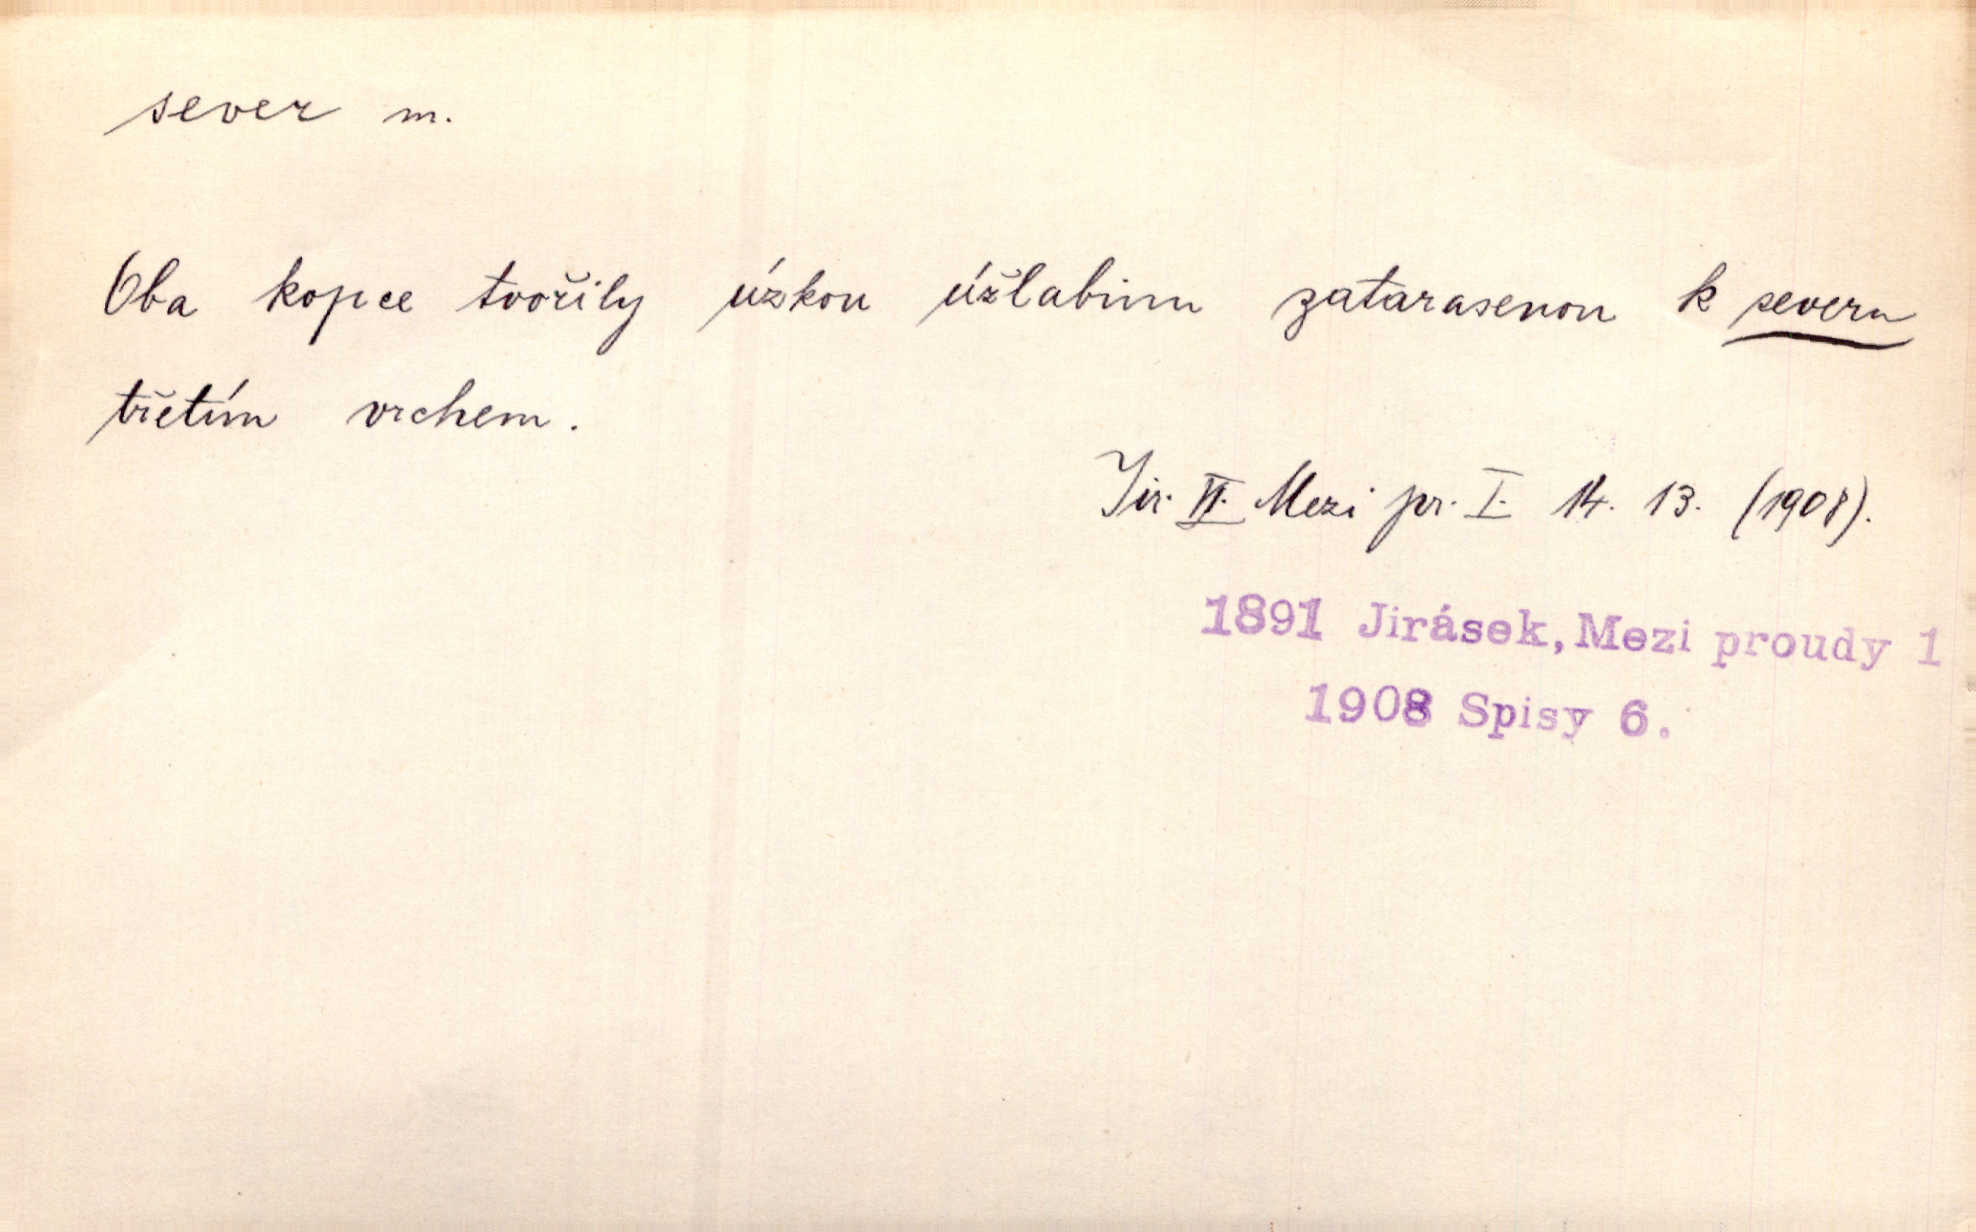 sever m.
Oba kopce tvořily úzkou úžlabinu zatarasenou k severu
třetím vrchem.
Jir. VI. Mezi pr. I. 14. 13. (1908).
1891 Jirásek, Mezi proudy 1
1908 Spisy 6.